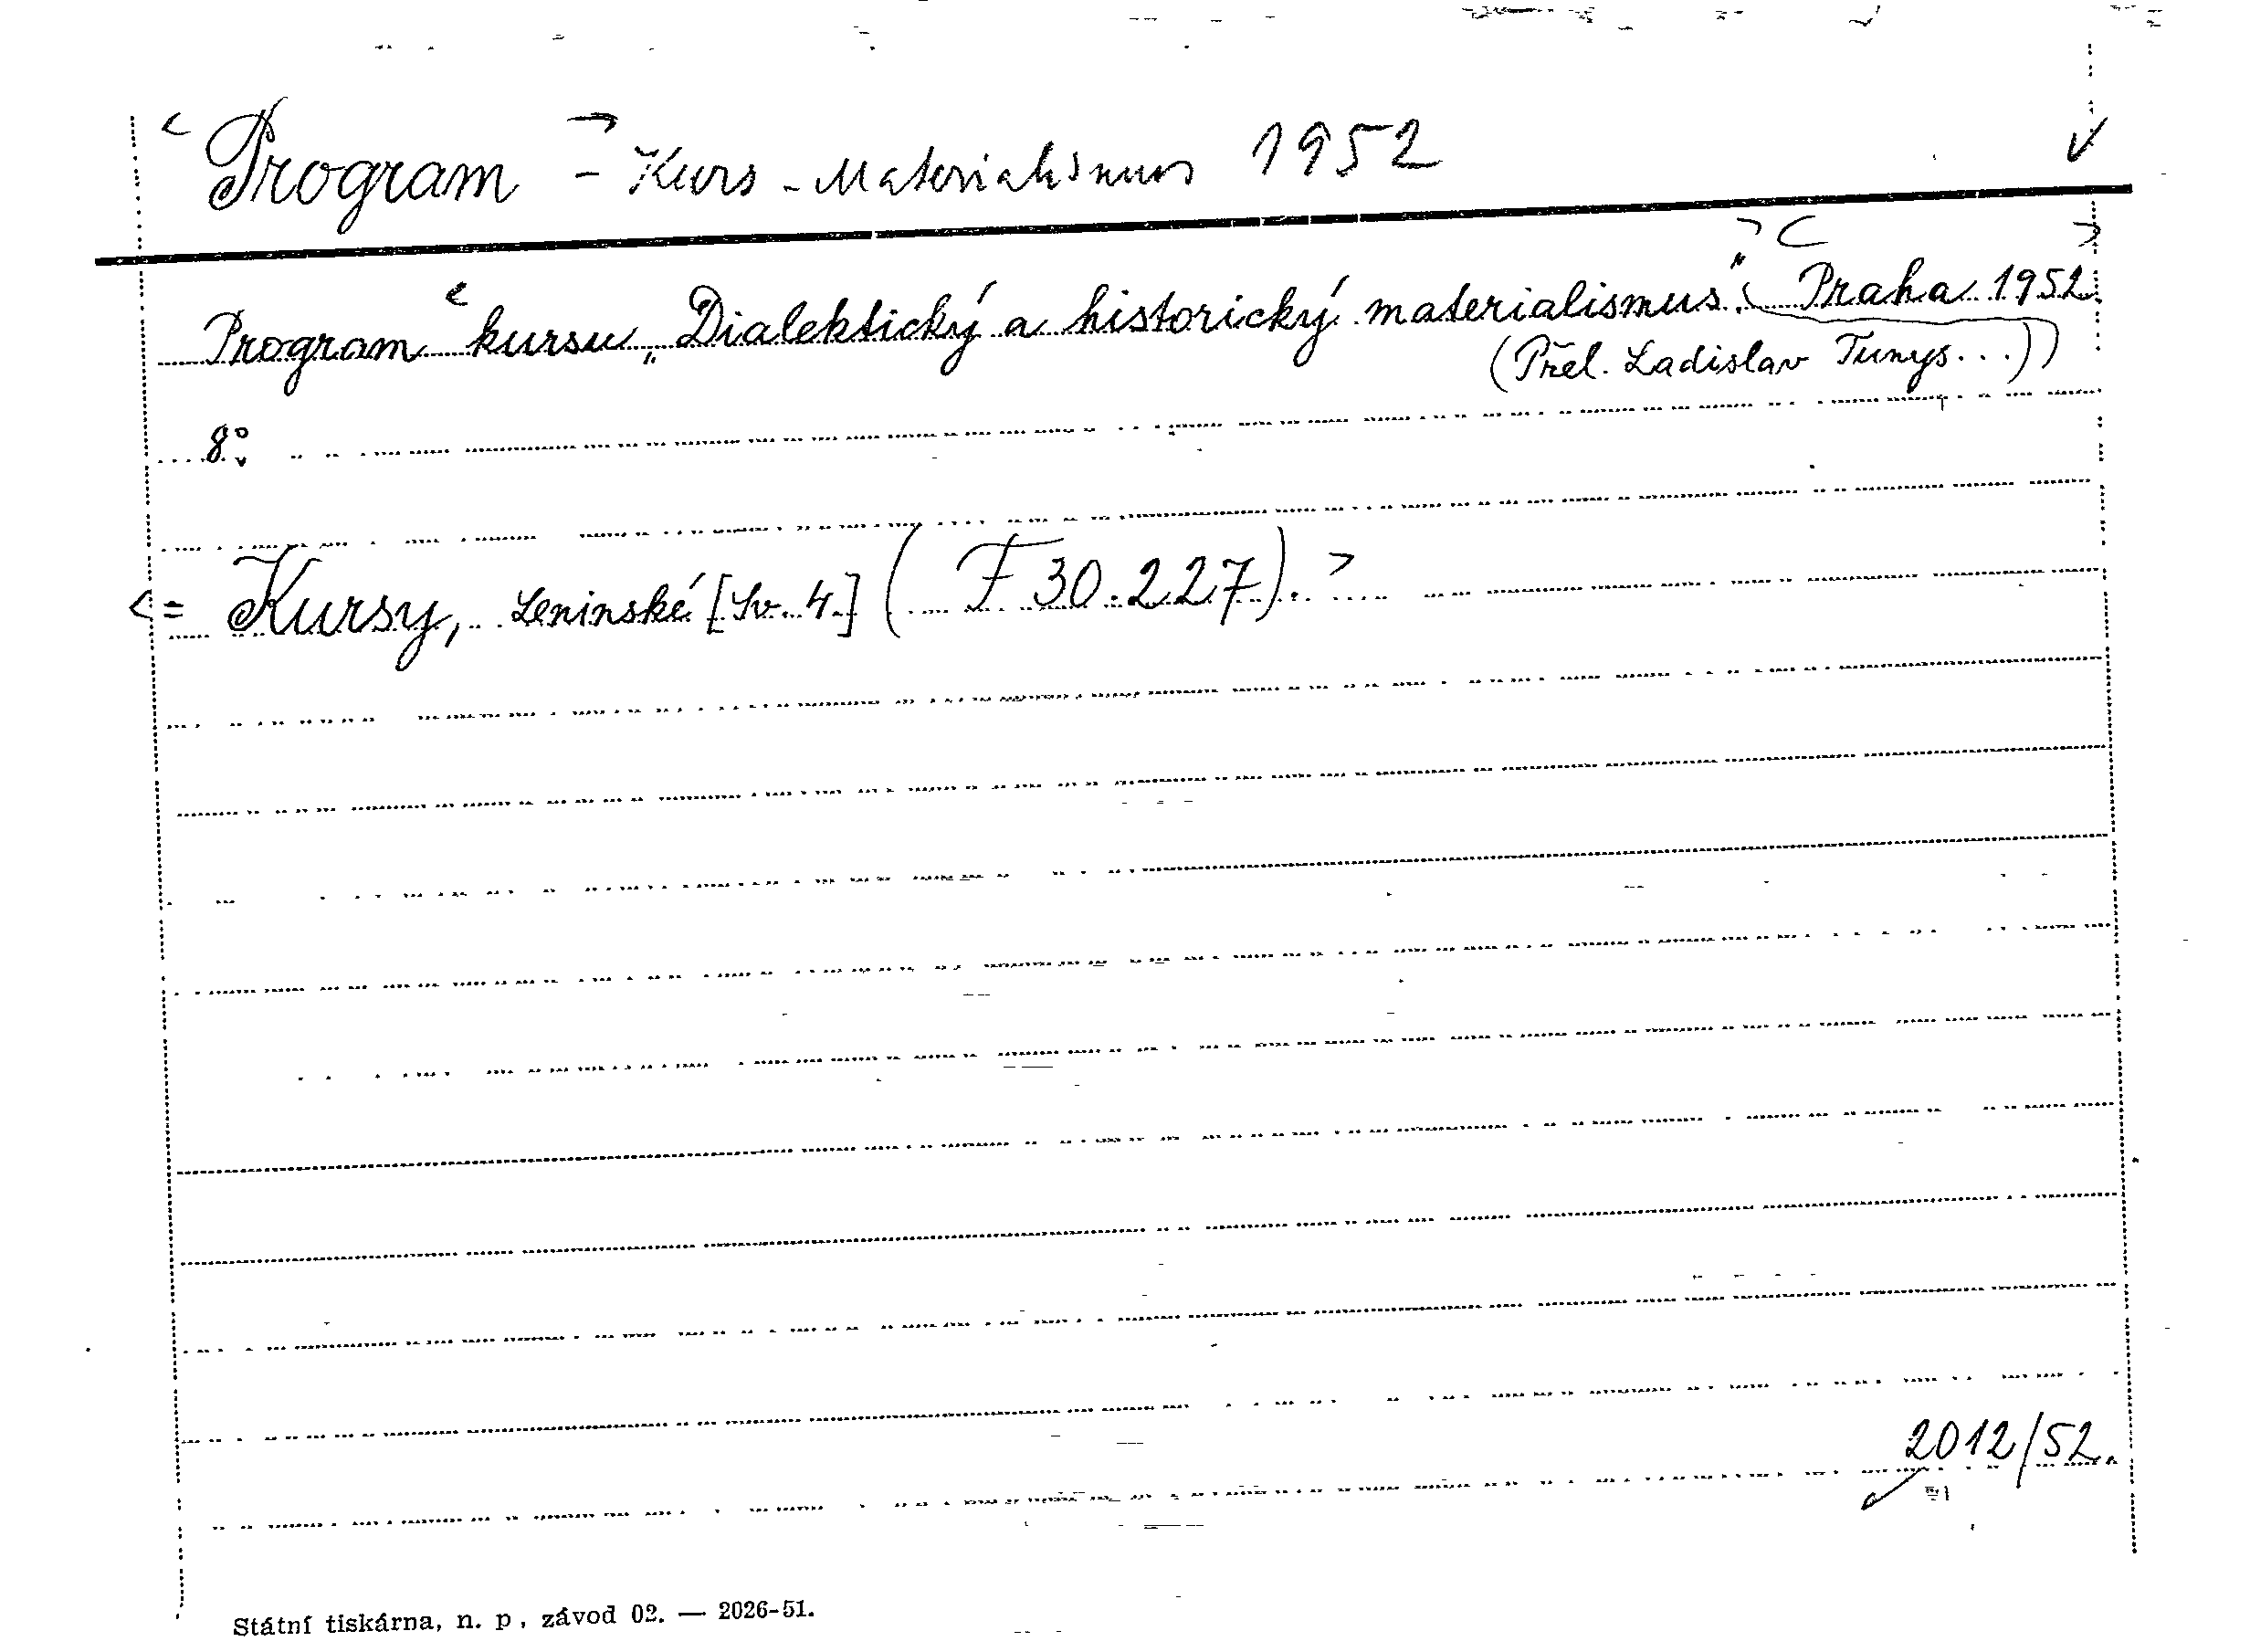 Program - Kurs - Materialismus 1952
Program kursu „Dialektický a historický materialismus". Praha 1952
(Přel. Ladislav Tunys...))
8°.
= Kursy, Leninské [Sv. 4.] (F 30.227).
2012/52.
Státní tiskárna, n. p., závod 02. — 2026-51.